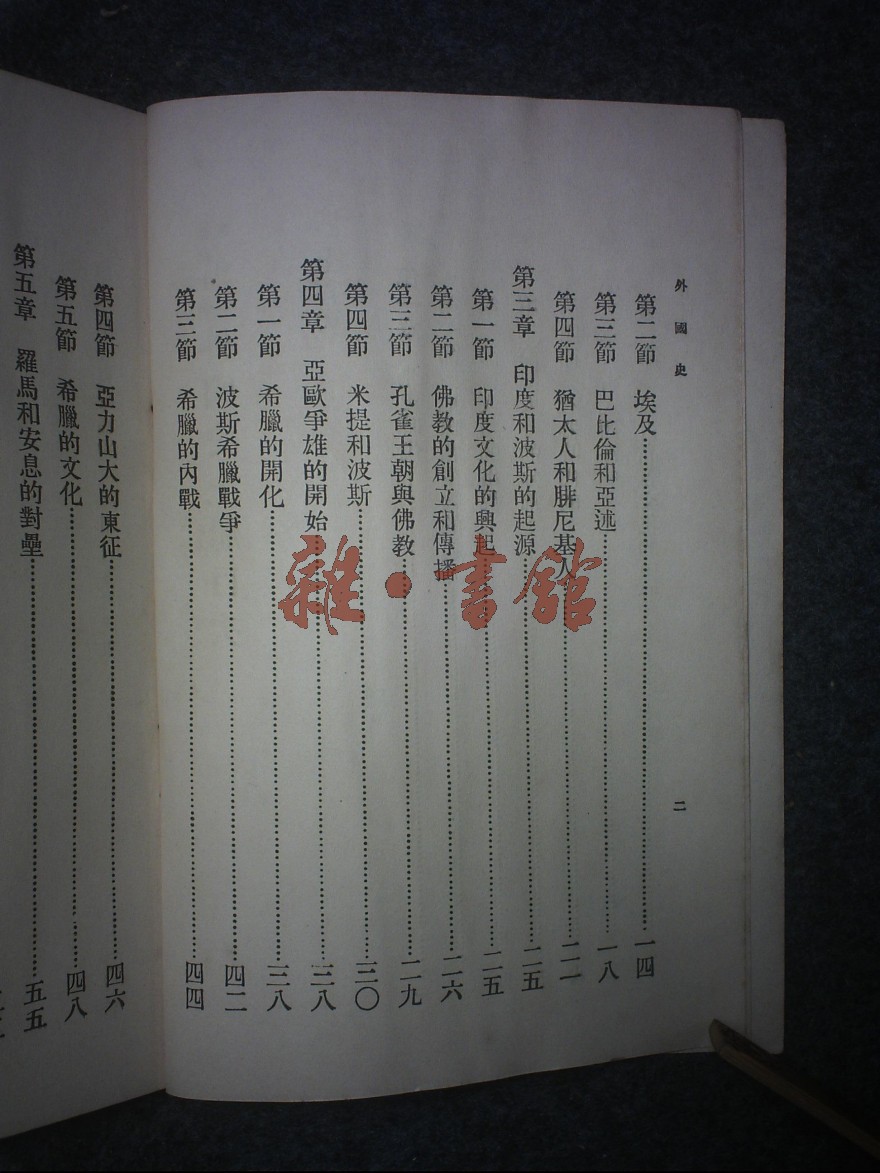 外國史
二
第二節 埃及……一四
第三節 巴比倫和亞述……一八
第四節 猶太人和腓尼基人……二一
第三章 印度和波斯的起源……二五
第一節 印度文化的興起……二五
第二節 佛教的創立和傳播……二六
第三節 孔雀王朝與佛教……二九
第四節 米提和波斯……三〇
第四章 亞歐爭雄的開始……三八
第一節 希臘的開化……三八
第二節 波斯希臘戰爭……四二
第三節 希臘的內戰……四四
第四節 亞力山大的東征……四六
第五節 希臘的文化……四八
第五章 羅馬和安息的對壘……五五
雜·書館